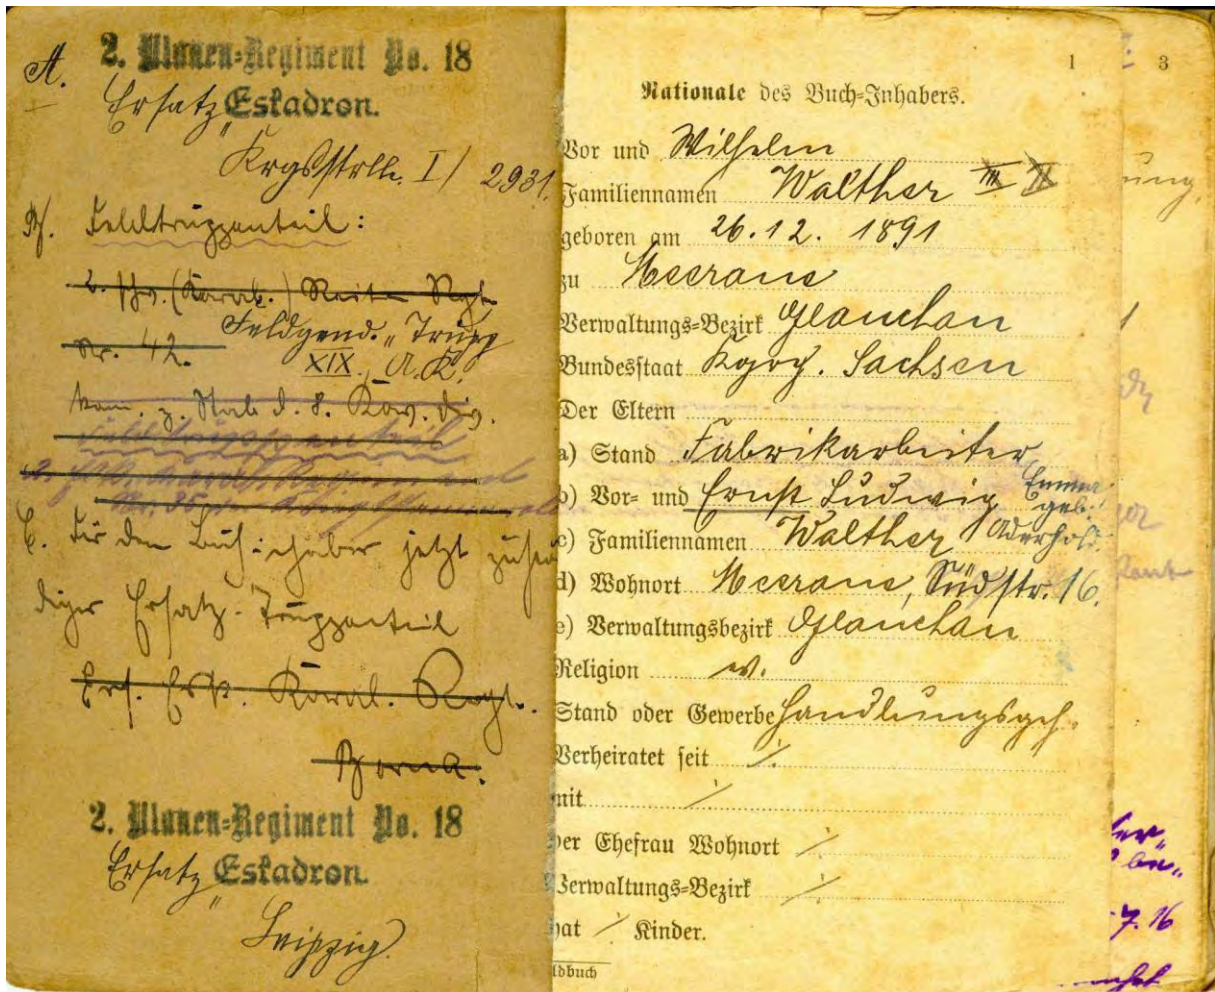 A.
2. Ulanen-Regiment No. 18
Ersatz Eskadron.
Krgsstrlle. I/ 2931.
B. Feldtruppenteil:
2. (Karab.) Reiter Rgt.
Nr. 42.
Feldgend. „ Trupp
XIX. A. K.
kom. z. Stab d. 8. Kav. Div.
Feldtruppenteil
C. Für den Buchinhaber jetzt zustän
diger Ersatz-Truppenteil
Ers. Esk. Karab. Regt.
Borna.
2. Ulanen-Regiment No. 18
Ersatz „ Eskadron.
Leipzig.
1
Nationale des Buch-Inhabers.
Vor und Wilhelm
Familiennamen Walther III II
geboren am 26.12. 1891
zu Meerane
Verwaltungs-Bezirk Glauchau
Bundesstaat Kgrch. Sachsen
Der Eltern
a) Stand Fabrikarbeiter
b) Vor- und Ernst Ludwig Emma
geb.
c) Familiennamen Walther Aderhold.
d) Wohnort Meerane, Südstr. 16.
e) Verwaltungsbezirk Glauchau
Religion ev.
Stand oder Gewerbe Handlungsgeh.
Verheiratet seit ·/.
mit /
der Ehefrau Wohnort ·/.
Verwaltungs-Bezirk ·/.
hat / Kinder.
ldbuch
3
ung,
7. 16